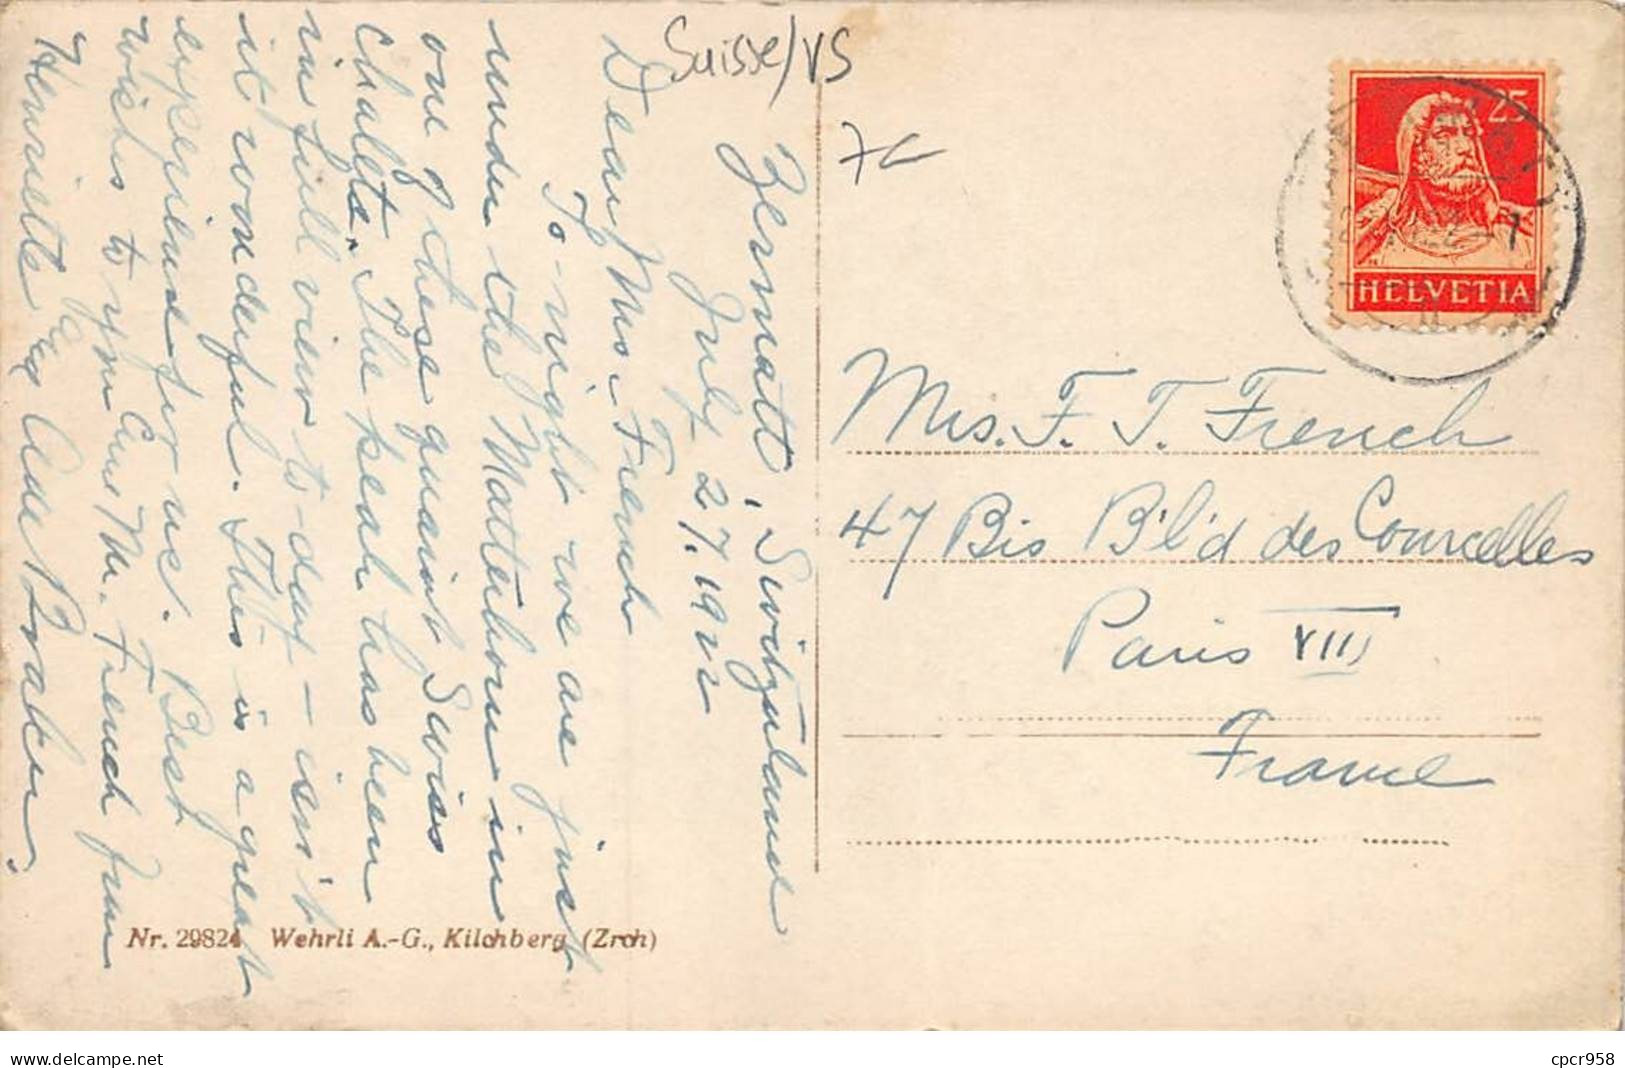 Suisse/VS
Zermatt, Switzerland
July 27. 1922
Dear Mrs. French
To-night we are just
under the Matterhorn in
one of these quaint Swiss
chalets. The peak has been
in full view to-day – isn't
it wonderful. This is a great
experience for us. Best
wishes to you and Mr. French from
Henrietta and Ada
Nr. 29824 Wehrli A.-G., Kilchberg (Zrch)
25
HELVETIA
Mrs. F. T. French
47 Bis B'l'd des Courcelles
Paris VIII
France
cpcr958